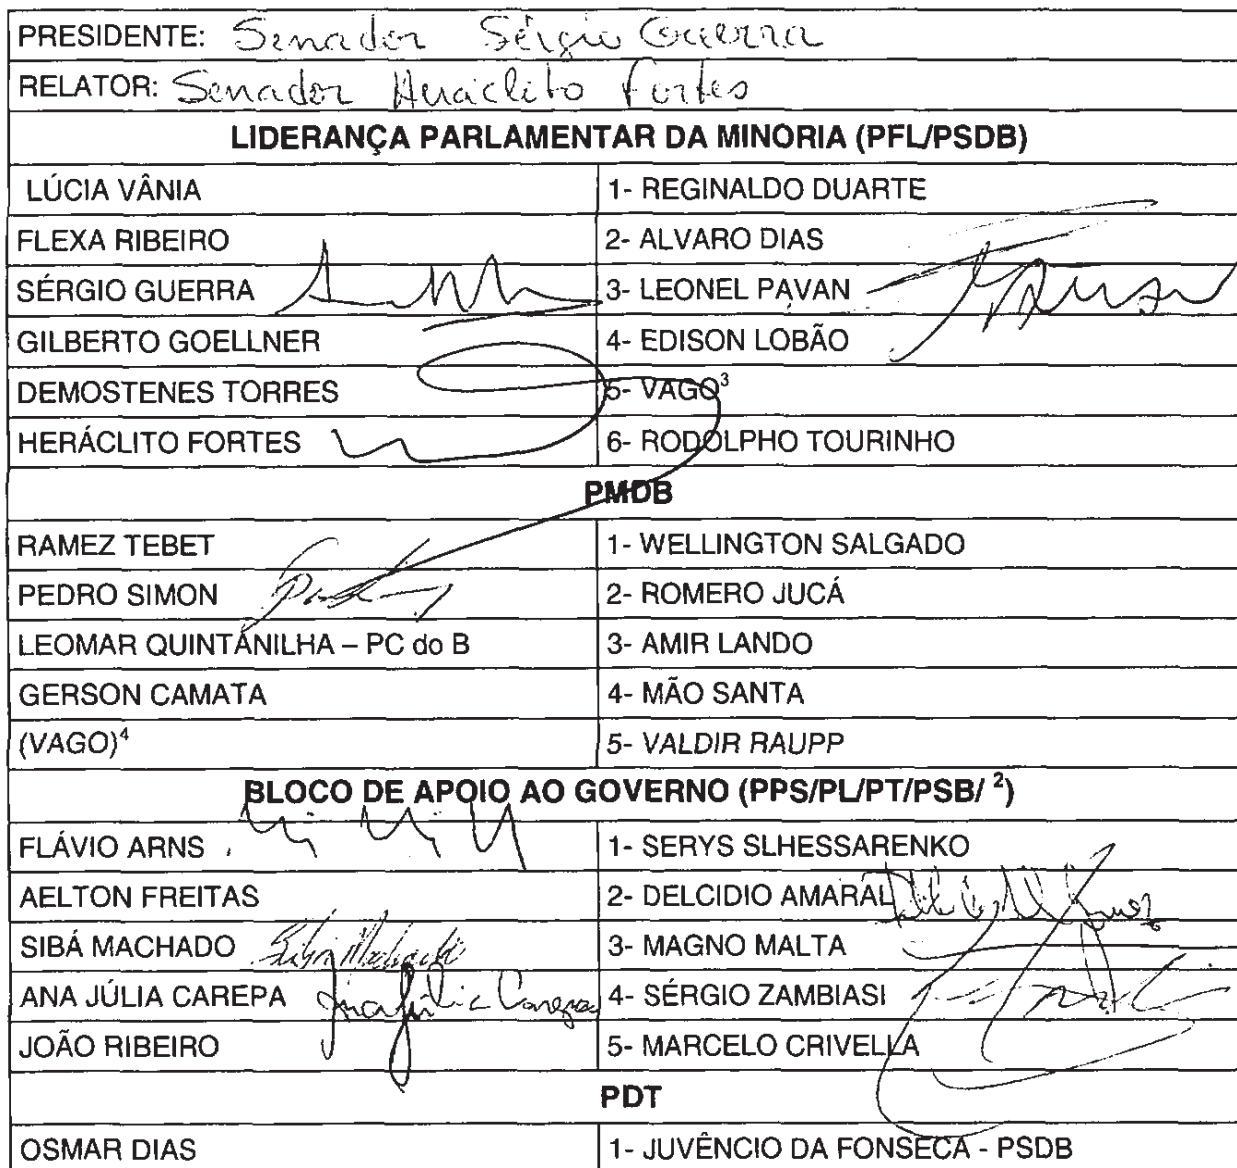 PRESIDENTE: Senador Sérgio Guerra
RELATOR: Senador Heráclito Fortes
LIDERANÇA PARLAMENTAR DA MINORIA (PFL/PSDB)
LÚCIA VÂNIA 1- REGINALDO DUARTE
FLEXA RIBEIRO 2- ALVARO DIAS
SÉRGIO GUERRA 3- LEONEL PAVAN
GILBERTO GOELLNER 4- EDISON LOBÃO
DEMOSTENES TORRES 5- VAGO³
HERÁCLITO FORTES 6- RODOLPHO TOURINHO
PMDB
RAMEZ TEBET 1- WELLINGTON SALGADO
PEDRO SIMON 2- ROMERO JUCÁ
LEOMAR QUINTANILHA – PC do B 3- AMIR LANDO
GERSON CAMATA 4- MÃO SANTA
(VAGO)⁴ 5- VALDIR RAUPP
BLOCO DE APOIO AO GOVERNO (PPS/PL/PT/PSB/ ²)
FLÁVIO ARNS 1- SERYS SLHESSARENKO
AELTON FREITAS 2- DELCIDIO AMARAL
SIBÁ MACHADO Sibá Machado 3- MAGNO MALTA
ANA JÚLIA CAREPA Ana Júlia Carepa 4- SÉRGIO ZAMBIASI
JOÃO RIBEIRO 5- MARCELO CRIVELLA
PDT
OSMAR DIAS 1- JUVÊNCIO DA FONSECA - PSDB